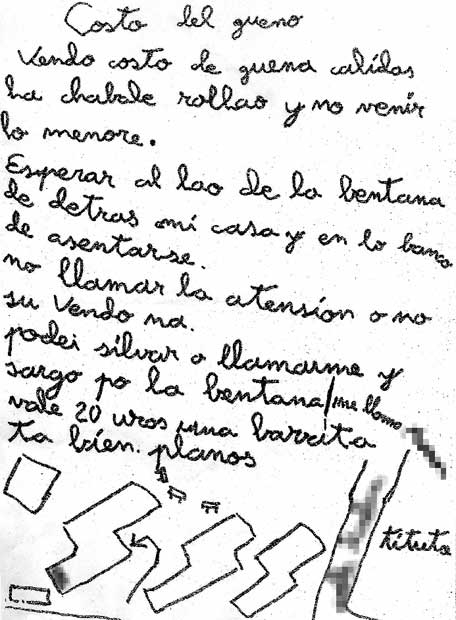 Costo del gueno
Vendo costo de guena calidas
ta chabale rollao y no venir
lo menore.
Esperar al lao de la bentana
de detras mi casa y en lo banco
de asentarse.
no llamar la atension o no
su Vendo na.
podei silvar o llamarme y
sargo po la bentana / me llamo
vale 20 uros una barrita
ta bien. planos
tituto